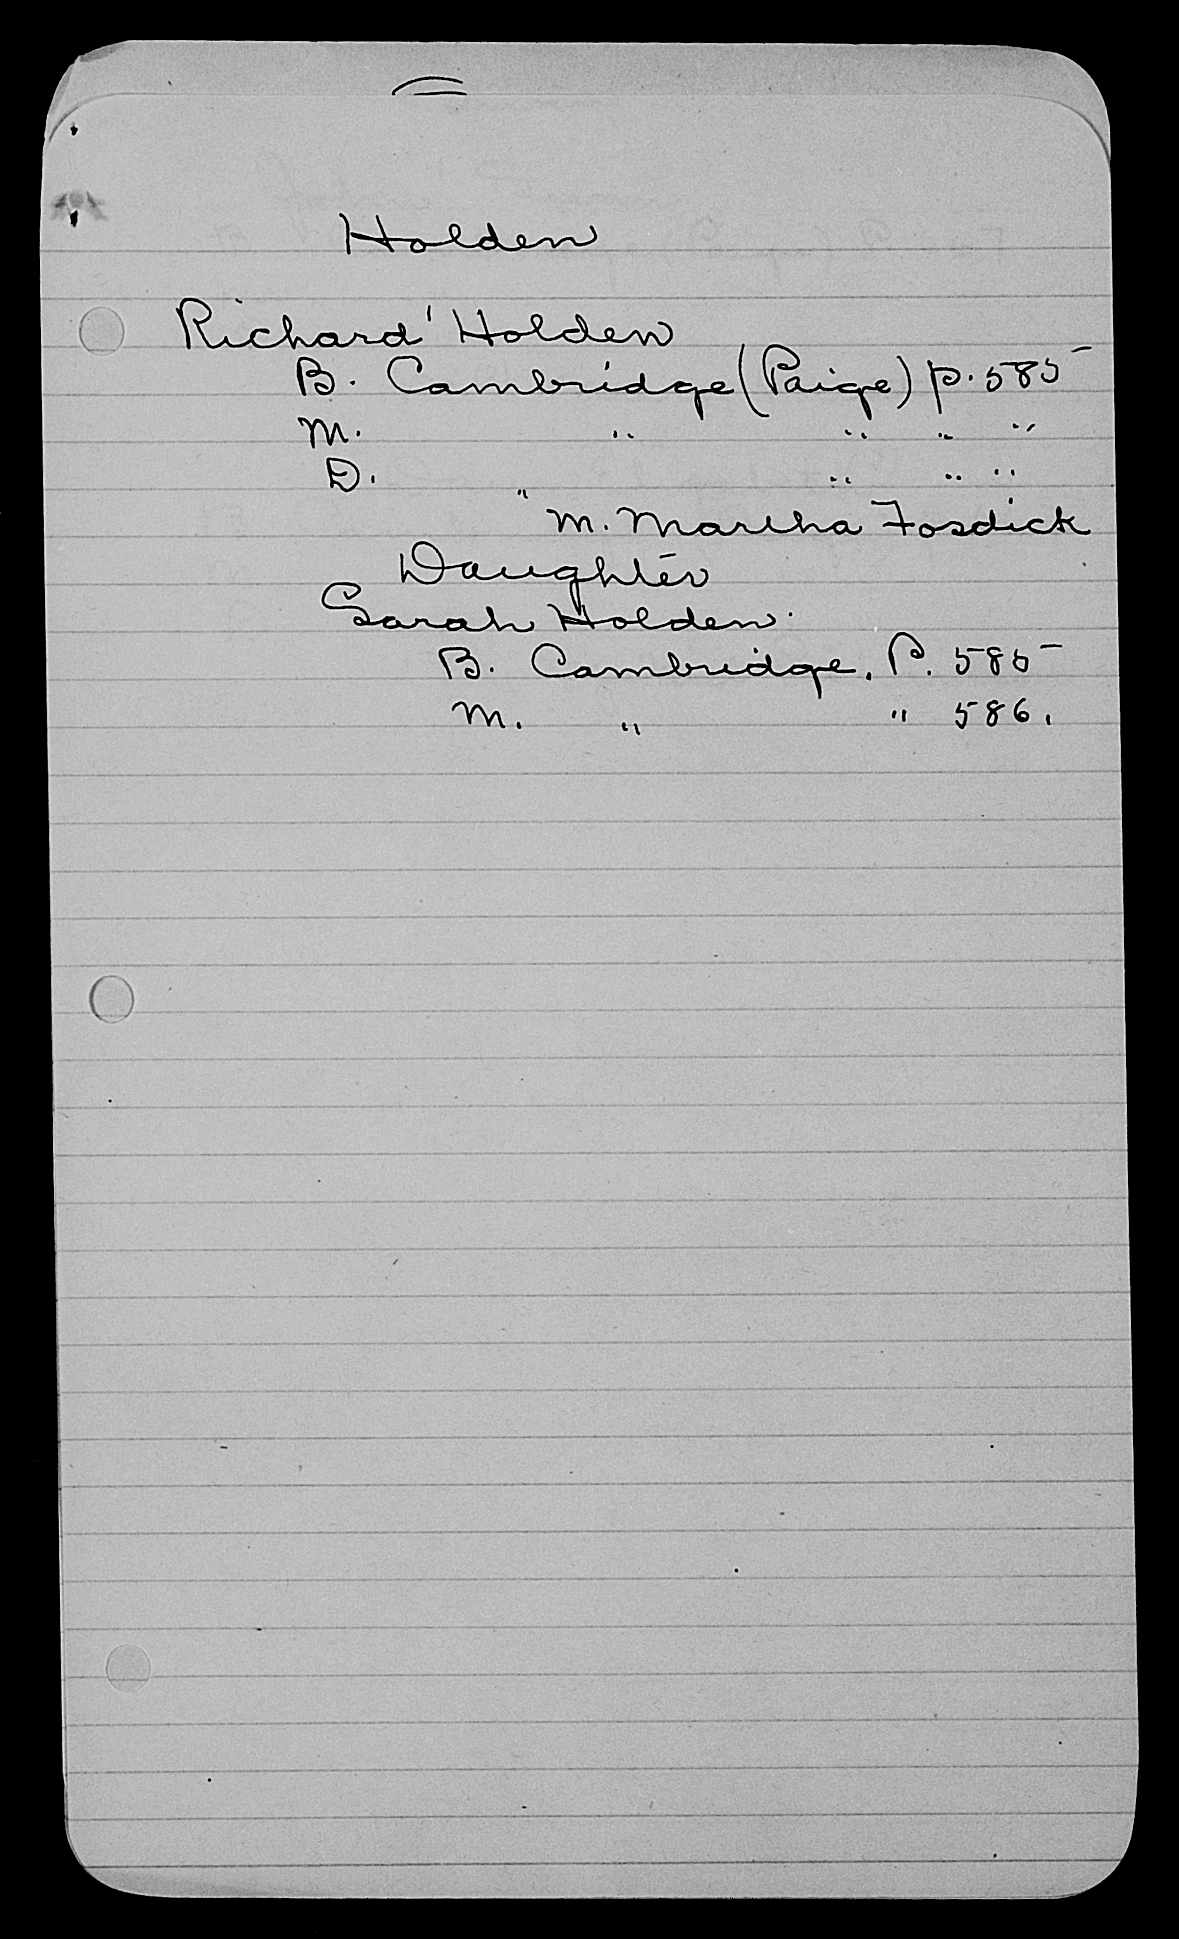 Holden
Richard' Holden
B. Cambridge (Paige) p. 585
M. " " " "
D. " " " "
M. Martha Fosdick
Daughter
Sarah Holden.
B. Cambridge. P. 585
M. " " 586.